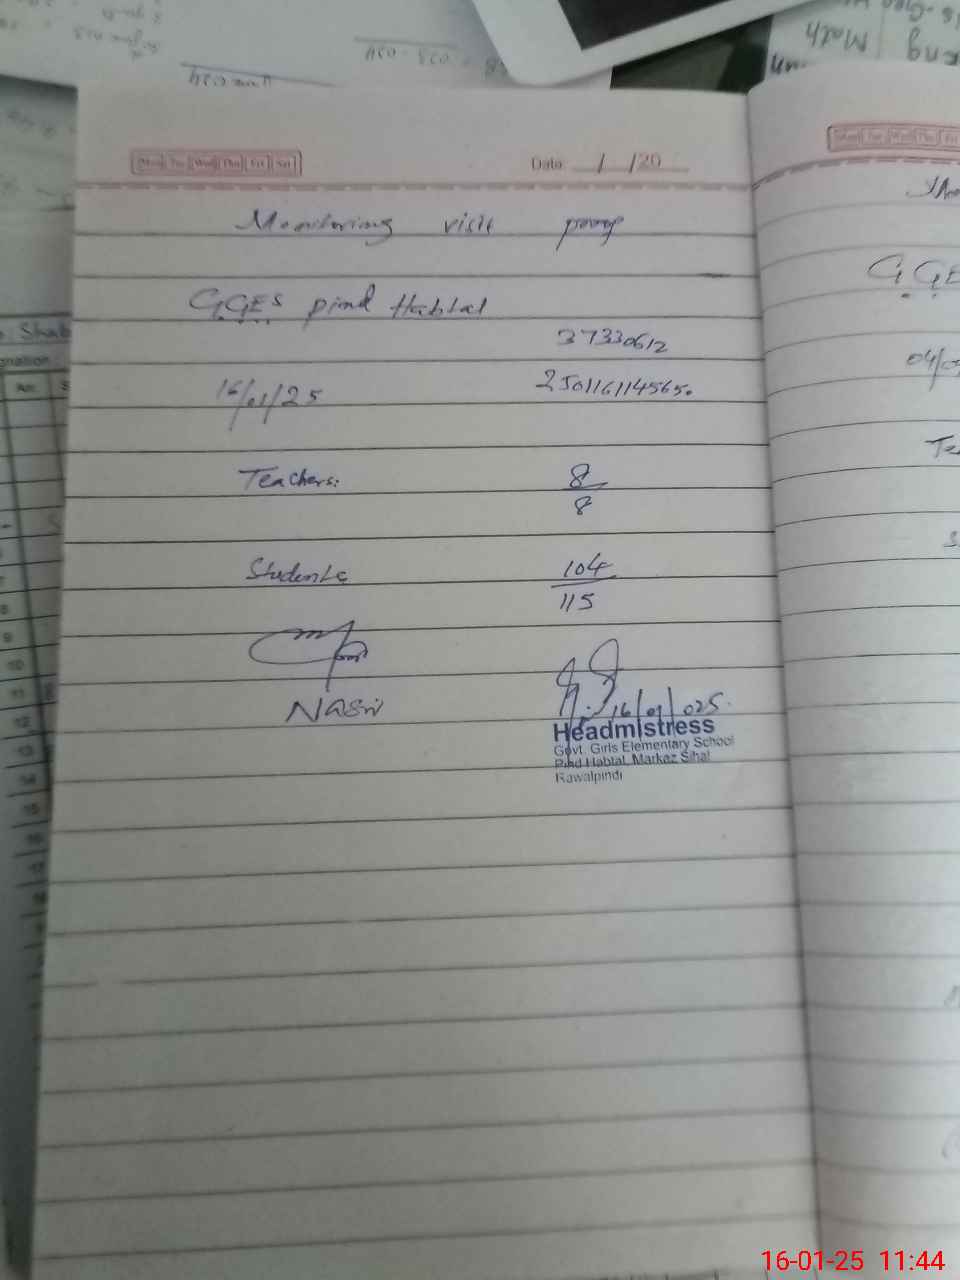 Mon Tue Wed Thu Fri Sat
Date / /20
Monitoring visit proof
GGES pind Habtal
37330612
16/01/25 250116114565.
Teachers: 8/8
Students 104/115
16/01/025.
Headmistress
Govt. Girls Elementary School
Pind Habtal, Markaz Sihal
Rawalpindi
Mon Tue Wed Thu Fri
GGE
04/0
Te
Math
Eng
16-01-25 11:44